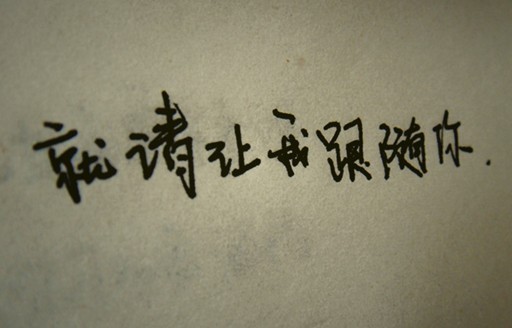 就请让我跟随你.